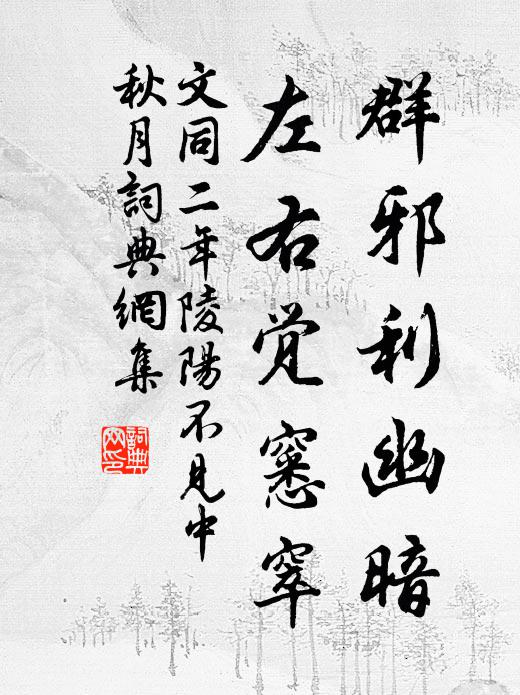 群邪利幽暗
左右觉窸窣
文同二年陵陽不见中
秋月詞典網集
詞典
网印